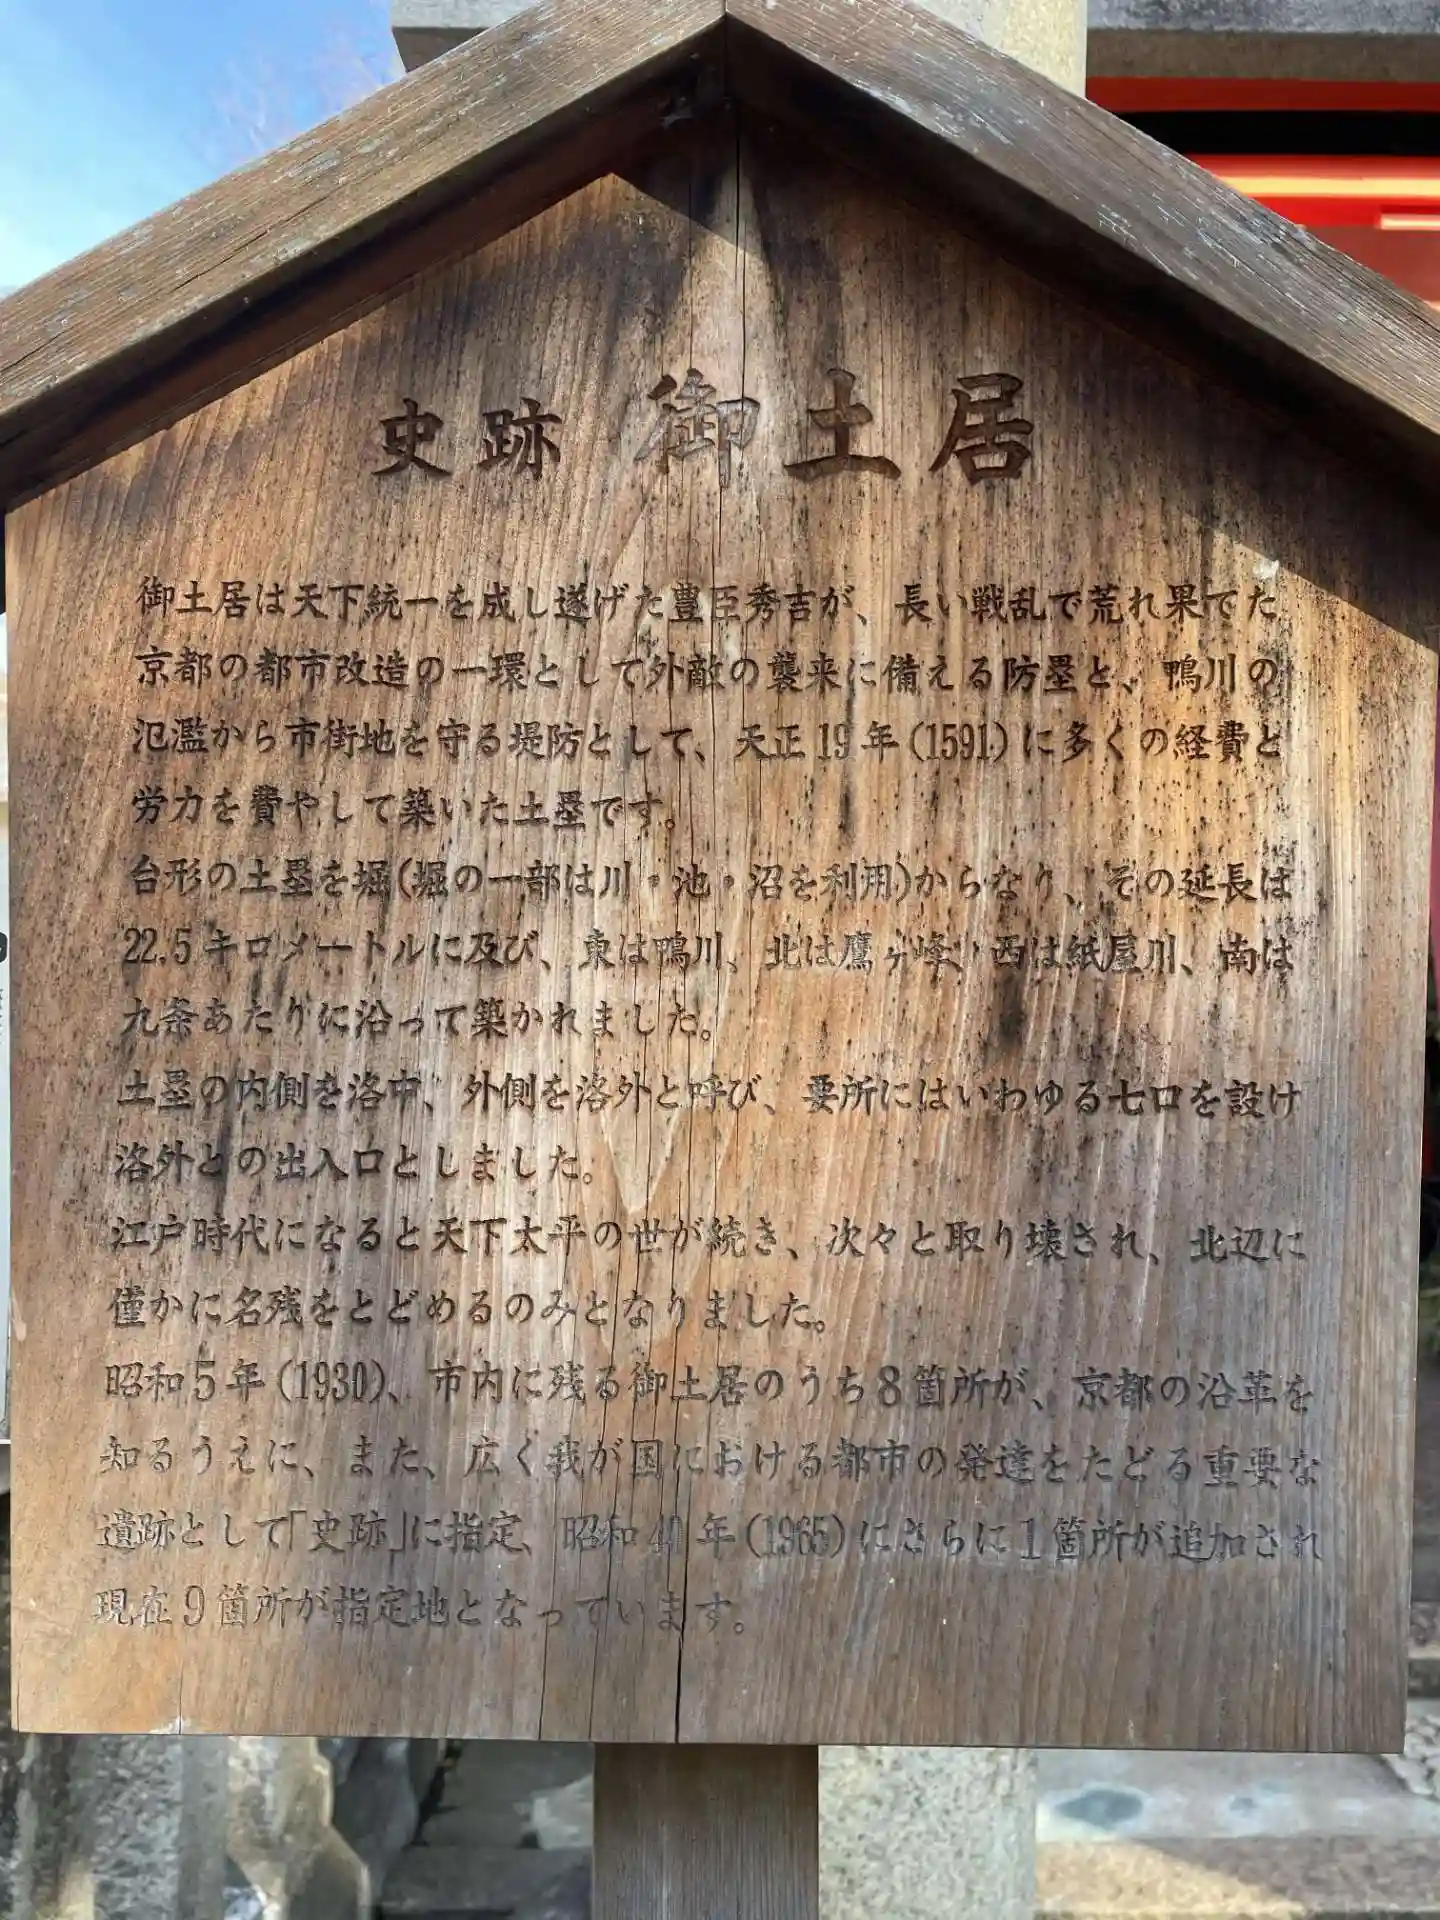 史跡 御土居
御土居は天下統一を成し遂げた豊臣秀吉が、長い戦乱で荒れ果てた
京都の都市改造の一環として外敵の襲来に備える防塁と、鴨川の
氾濫から市街地を守る堤防として、天正19年(1591)に多くの経費と
労力を費やして築いた土塁です。
台形の土塁を堀(堀の一部は川・池・沼を利用)からなり、その延長は
22.5キロメートルに及び、東は鴨川、北は鷹ヶ峰、西は紙屋川、南は
九条あたりに沿って築かれました。
土塁の内側を洛中、外側を洛外と呼び、要所にはいわゆる七口を設け
洛外との出入口としました。
江戸時代になると天下太平の世が続き、次々と取り壊され、北辺に
僅かに名残をとどめるのみとなりました。
昭和5年(1930)、市内に残る御土居のうち8箇所が、京都の沿革を
知るうえに、また、広く我が国における都市の発達をたどる重要な
遺跡として「史跡」に指定、昭和40年(1965)にさらに1箇所が追加され
現在9箇所が指定地となっています。